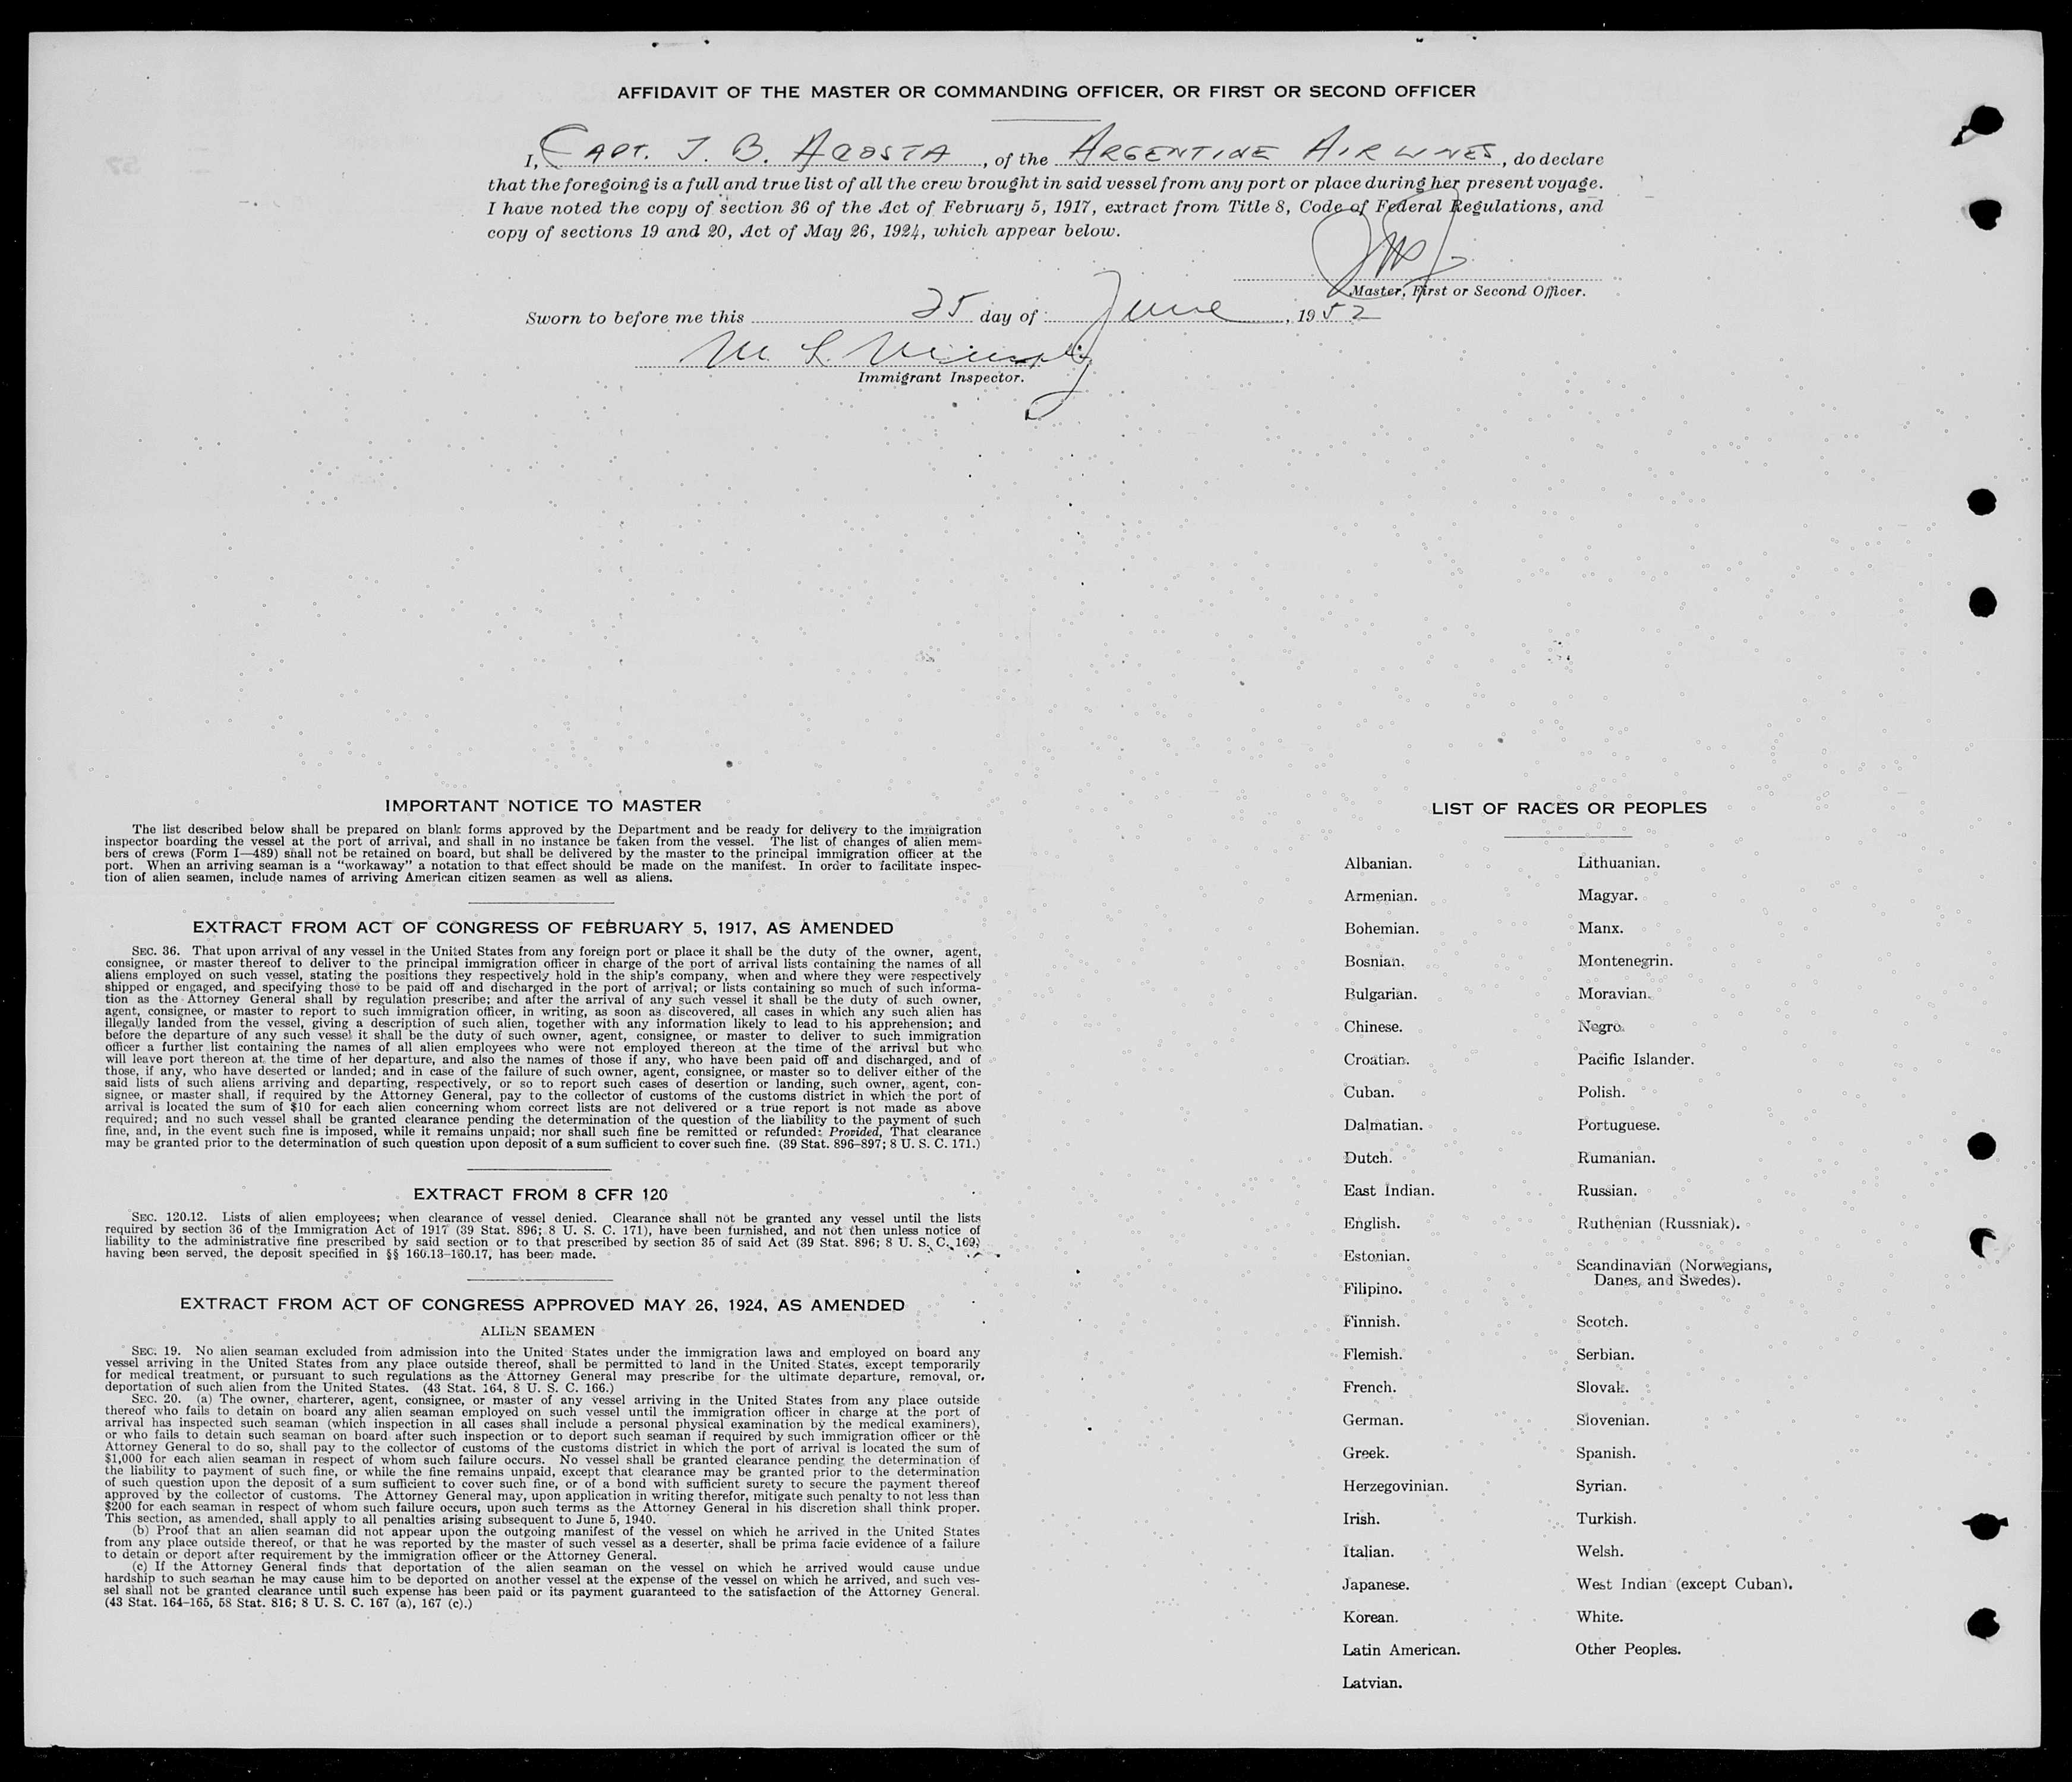 AFFIDAVIT OF THE MASTER OR COMMANDING OFFICER, OR FIRST OR SECOND OFFICER
I, CAPT. J. B. ACOSTA, of the ARGENTINE AIRLINES, do declare
that the foregoing is a full and true list of all the crew brought in said vessel from any port or place during her present voyage.
I have noted the copy of section 36 of the Act of February 5, 1917, extract from Title 8, Code of Federal Regulations, and
copy of sections 19 and 20, Act of May 26, 1924, which appear below.
Master, First or Second Officer.
Sworn to before me this 25 day of June, 1952
M. L.
Immigrant Inspector.
IMPORTANT NOTICE TO MASTER
The list described below shall be prepared on blank forms approved by the Department and be ready for delivery to the immigration
inspector boarding the vessel at the port of arrival, and shall in no instance be taken from the vessel. The list of changes of alien mem-
bers of crews (Form I—489) shall not be retained on board, but shall be delivered by the master to the principal immigration officer at the
port. When an arriving seaman is a "workaway" a notation to that effect should be made on the manifest. In order to facilitate inspec-
tion of alien seamen, include names of arriving American citizen seamen as well as aliens.
EXTRACT FROM ACT OF CONGRESS OF FEBRUARY 5, 1917, AS AMENDED
SEC. 36. That upon arrival of any vessel in the United States from any foreign port or place it shall be the duty of the owner, agent,
consignee, or master thereof to deliver to the principal immigration officer in charge of the port of arrival lists containing the names of all
aliens employed on such vessel, stating the positions they respectively hold in the ship's company, when and where they were respectively
shipped or engaged, and specifying those to be paid off and discharged in the port of arrival; or lists containing so much of such informa-
tion as the Attorney General shall by regulation prescribe; and after the arrival of any such vessel it shall be the duty of such owner,
agent, consignee, or master to report to such immigration officer, in writing, as soon as discovered, all cases in which any such alien has
illegally landed from the vessel, giving a description of such alien, together with any information likely to lead to his apprehension; and
before the departure of any such vessel it shall be the duty of such owner, agent, consignee, or master to deliver to such immigration
officer a further list containing the names of all alien employees who were not employed thereon at the time of the arrival but who
will leave port thereon at the time of her departure, and also the names of those if any, who have been paid off and discharged, and of
those, if any, who have deserted or landed; and in case of the failure of such owner, agent, consignee, or master so to deliver either of the
said lists of such aliens arriving and departing, respectively, or so to report such cases of desertion or landing, such owner, agent, con-
signee, or master shall, if required by the Attorney General, pay to the collector of customs of the customs district in which the port of
arrival is located the sum of $10 for each alien concerning whom correct lists are not delivered or a true report is not made as above
required; and no such vessel shall be granted clearance pending the determination of the question of the liability to the payment of such
fine, and, in the event such fine is imposed, while it remains unpaid; nor shall such fine be remitted or refunded: Provided, That clearance
may be granted prior to the determination of such question upon deposit of a sum sufficient to cover such fine. (39 Stat. 896–897; 8 U. S. C. 171.)
EXTRACT FROM 8 CFR 120
SEC. 120.12. Lists of alien employees; when clearance of vessel denied. Clearance shall not be granted any vessel until the lists
required by section 36 of the Immigration Act of 1917 (39 Stat. 896; 8 U. S. C. 171), have been furnished, and not then unless notice of
liability to the administrative fine prescribed by said section or to that prescribed by section 35 of said Act (39 Stat. 896; 8 U. S. C. 169)
having been served, the deposit specified in §§ 160.13–160.17, has been made.
EXTRACT FROM ACT OF CONGRESS APPROVED MAY 26, 1924, AS AMENDED
ALIEN SEAMEN
SEC. 19. No alien seaman excluded from admission into the United States under the immigration laws and employed on board any
vessel arriving in the United States from any place outside thereof, shall be permitted to land in the United States, except temporarily
for medical treatment, or pursuant to such regulations as the Attorney General may prescribe for the ultimate departure, removal, or
deportation of such alien from the United States. (43 Stat. 164, 8 U. S. C. 166.)
SEC. 20. (a) The owner, charterer, agent, consignee, or master of any vessel arriving in the United States from any place outside
thereof who fails to detain on board any alien seaman employed on such vessel until the immigration officer in charge at the port of
arrival has inspected such seaman (which inspection in all cases shall include a personal physical examination by the medical examiners),
or who fails to detain such seaman on board after such inspection or to deport such seaman if required by such immigration officer or the
Attorney General to do so, shall pay to the collector of customs of the customs district in which the port of arrival is located the sum of
$1,000 for each alien seaman in respect of whom such failure occurs. No vessel shall be granted clearance pending the determination of
the liability to payment of such fine, or while the fine remains unpaid, except that clearance may be granted prior to the determination
of such question upon the deposit of a sum sufficient to cover such fine, or of a bond with sufficient surety to secure the payment thereof
approved by the collector of customs. The Attorney General may, upon application in writing therefor, mitigate such penalty to not less than
$200 for each seaman in respect of whom such failure occurs, upon such terms as the Attorney General in his discretion shall think proper.
This section, as amended, shall apply to all penalties arising subsequent to June 5, 1940.
(b) Proof that an alien seaman did not appear upon the outgoing manifest of the vessel on which he arrived in the United States
from any place outside thereof, or that he was reported by the master of such vessel as a deserter, shall be prima facie evidence of a failure
to detain or deport after requirement by the immigration officer or the Attorney General.
(c) If the Attorney General finds that deportation of the alien seaman on the vessel on which he arrived would cause undue
hardship to such seaman he may cause him to be deported on another vessel at the expense of the vessel on which he arrived, and such ves-
sel shall not be granted clearance until such expense has been paid or its payment guaranteed to the satisfaction of the Attorney General.
(43 Stat. 164–165, 58 Stat. 816; 8 U. S. C. 167 (a), 167 (c).)
LIST OF RACES OR PEOPLES
Albanian.
Armenian.
Bohemian.
Bosnian.
Bulgarian.
Chinese.
Croatian.
Cuban.
Dalmatian.
Dutch.
East Indian.
English.
Estonian.
Filipino.
Finnish.
Flemish.
French.
German.
Greek.
Herzegovinian.
Irish.
Italian.
Japanese.
Korean.
Latin American.
Latvian.
Lithuanian.
Magyar.
Manx.
Montenegrin.
Moravian.
Negro.
Pacific Islander.
Polish.
Portuguese.
Rumanian.
Russian.
Ruthenian (Russniak).
Scandinavian (Norwegians,
Danes, and Swedes).
Scotch.
Serbian.
Slovak.
Slovenian.
Spanish.
Syrian.
Turkish.
Welsh.
West Indian (except Cuban).
White.
Other Peoples.